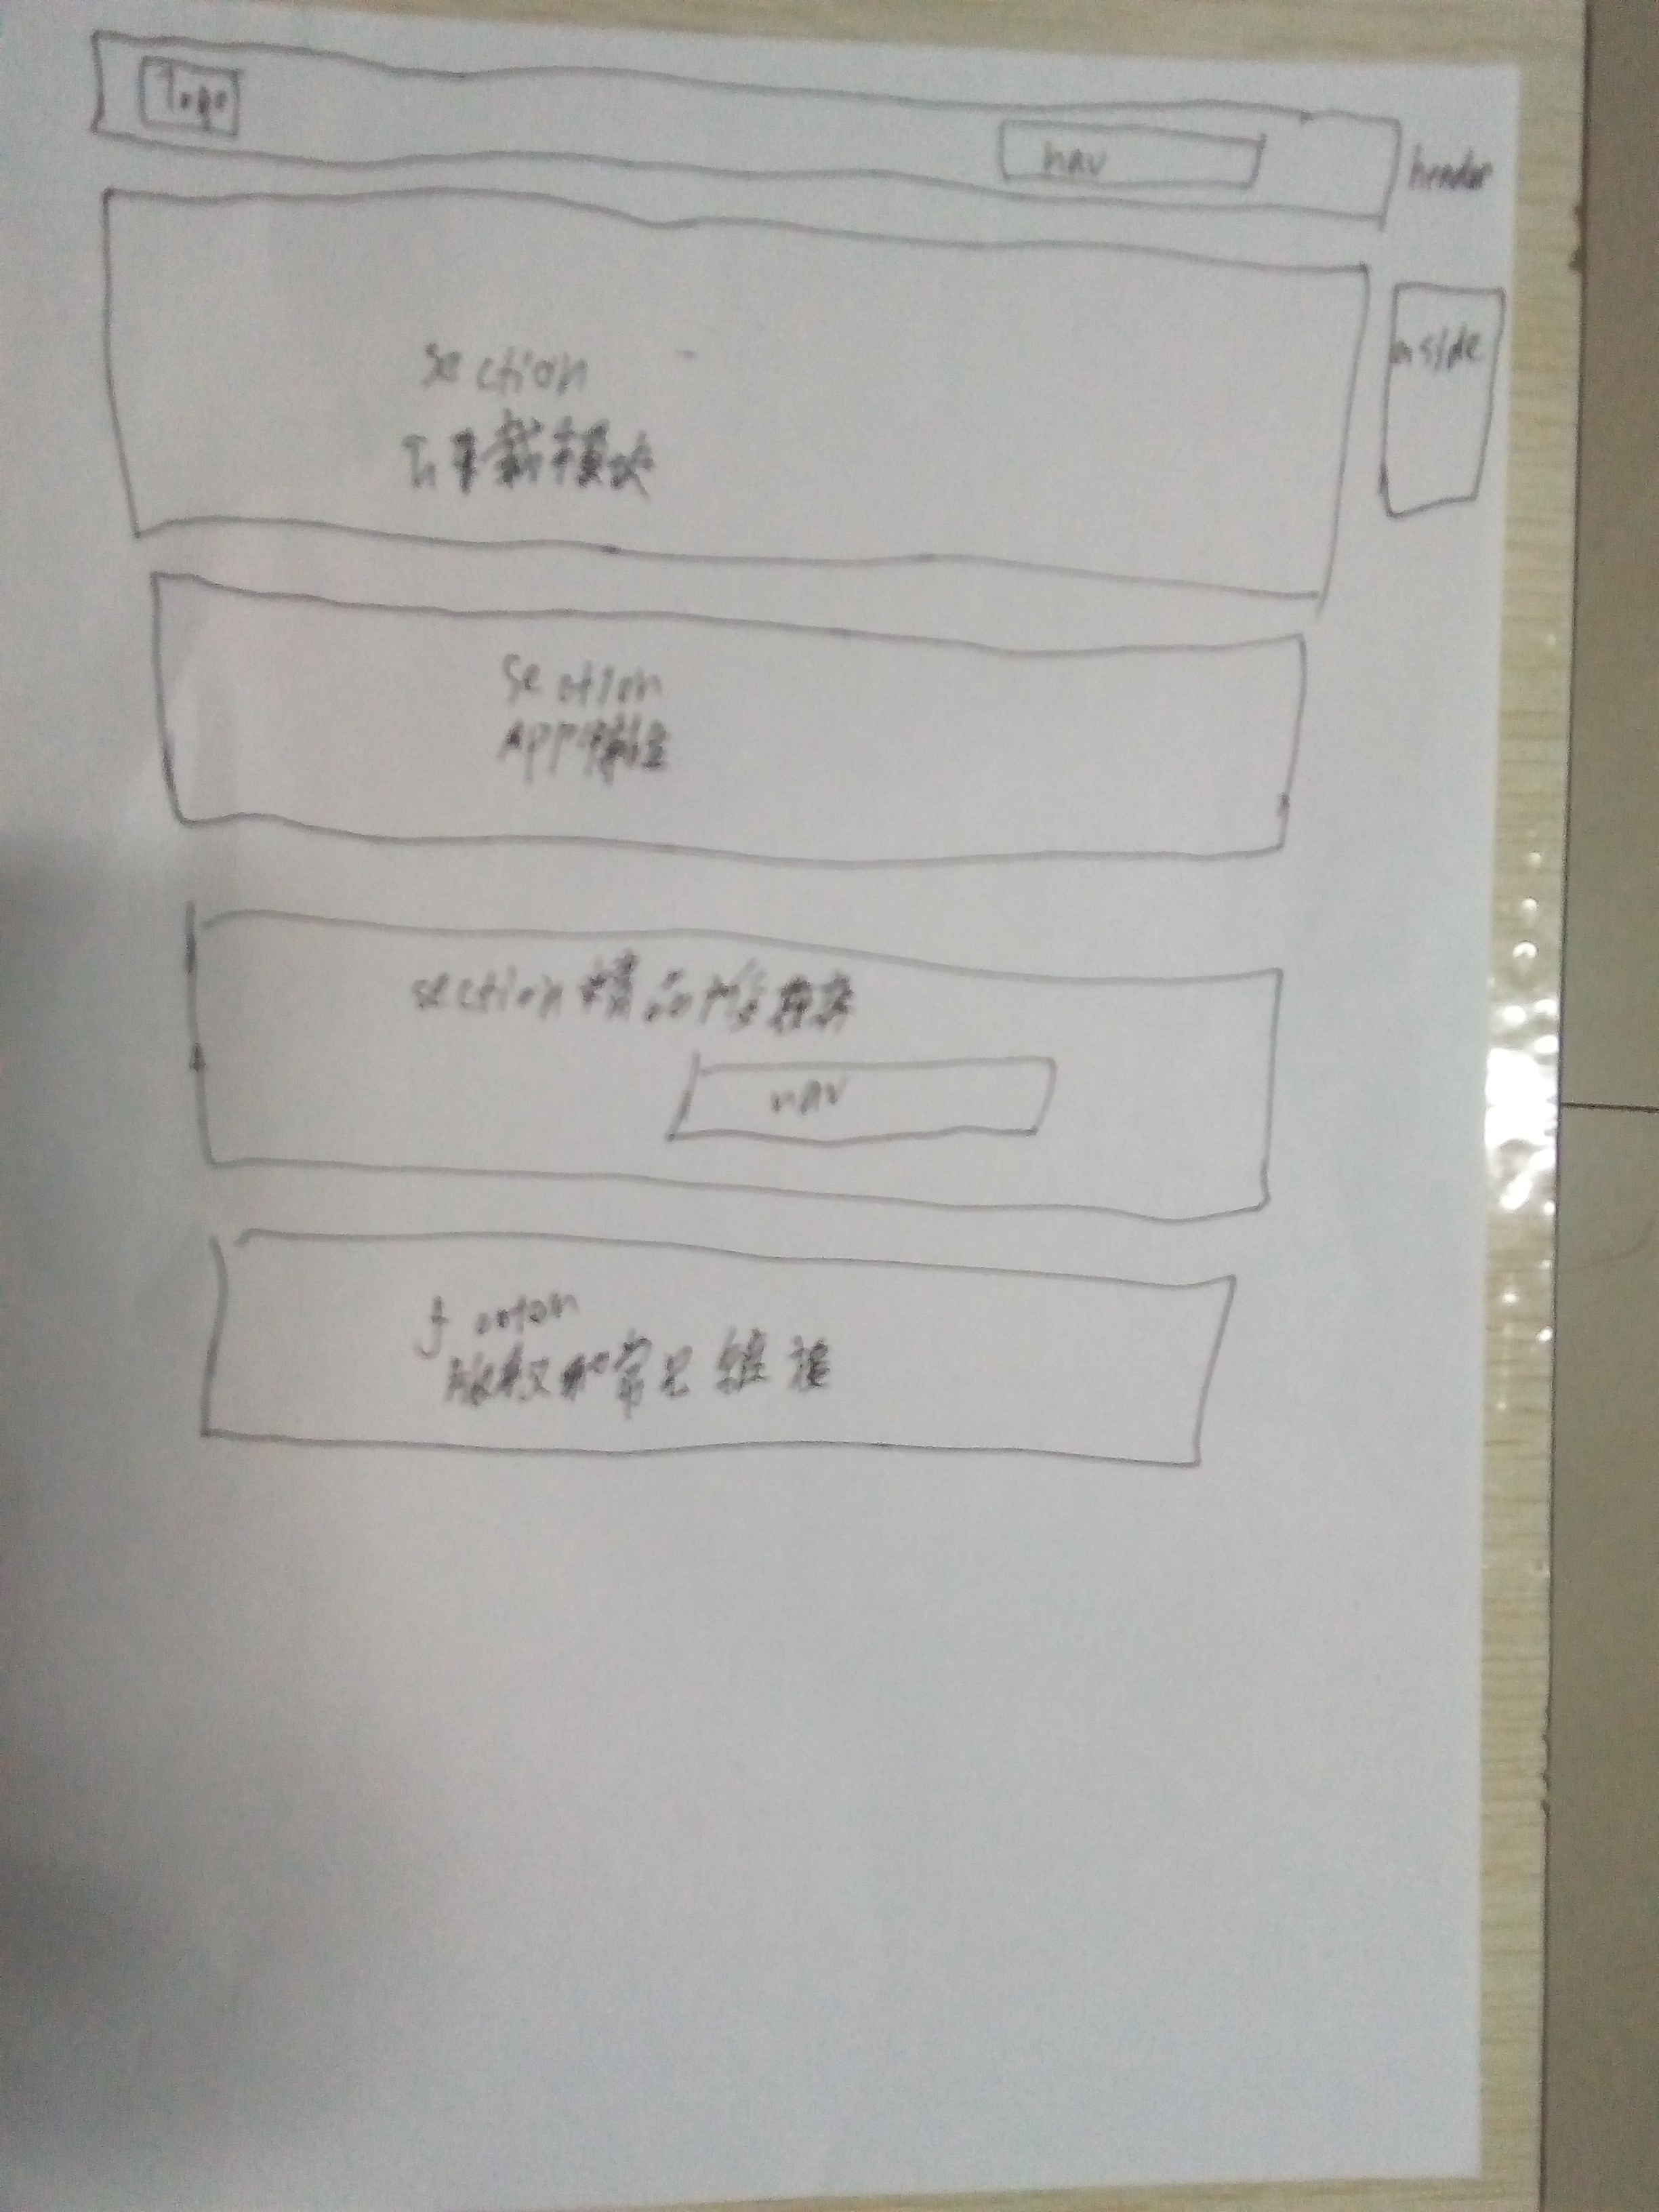 logo
nav
header
section
下载模块
aside
section
APP
section 精品推荐
nav
版权和常见链接